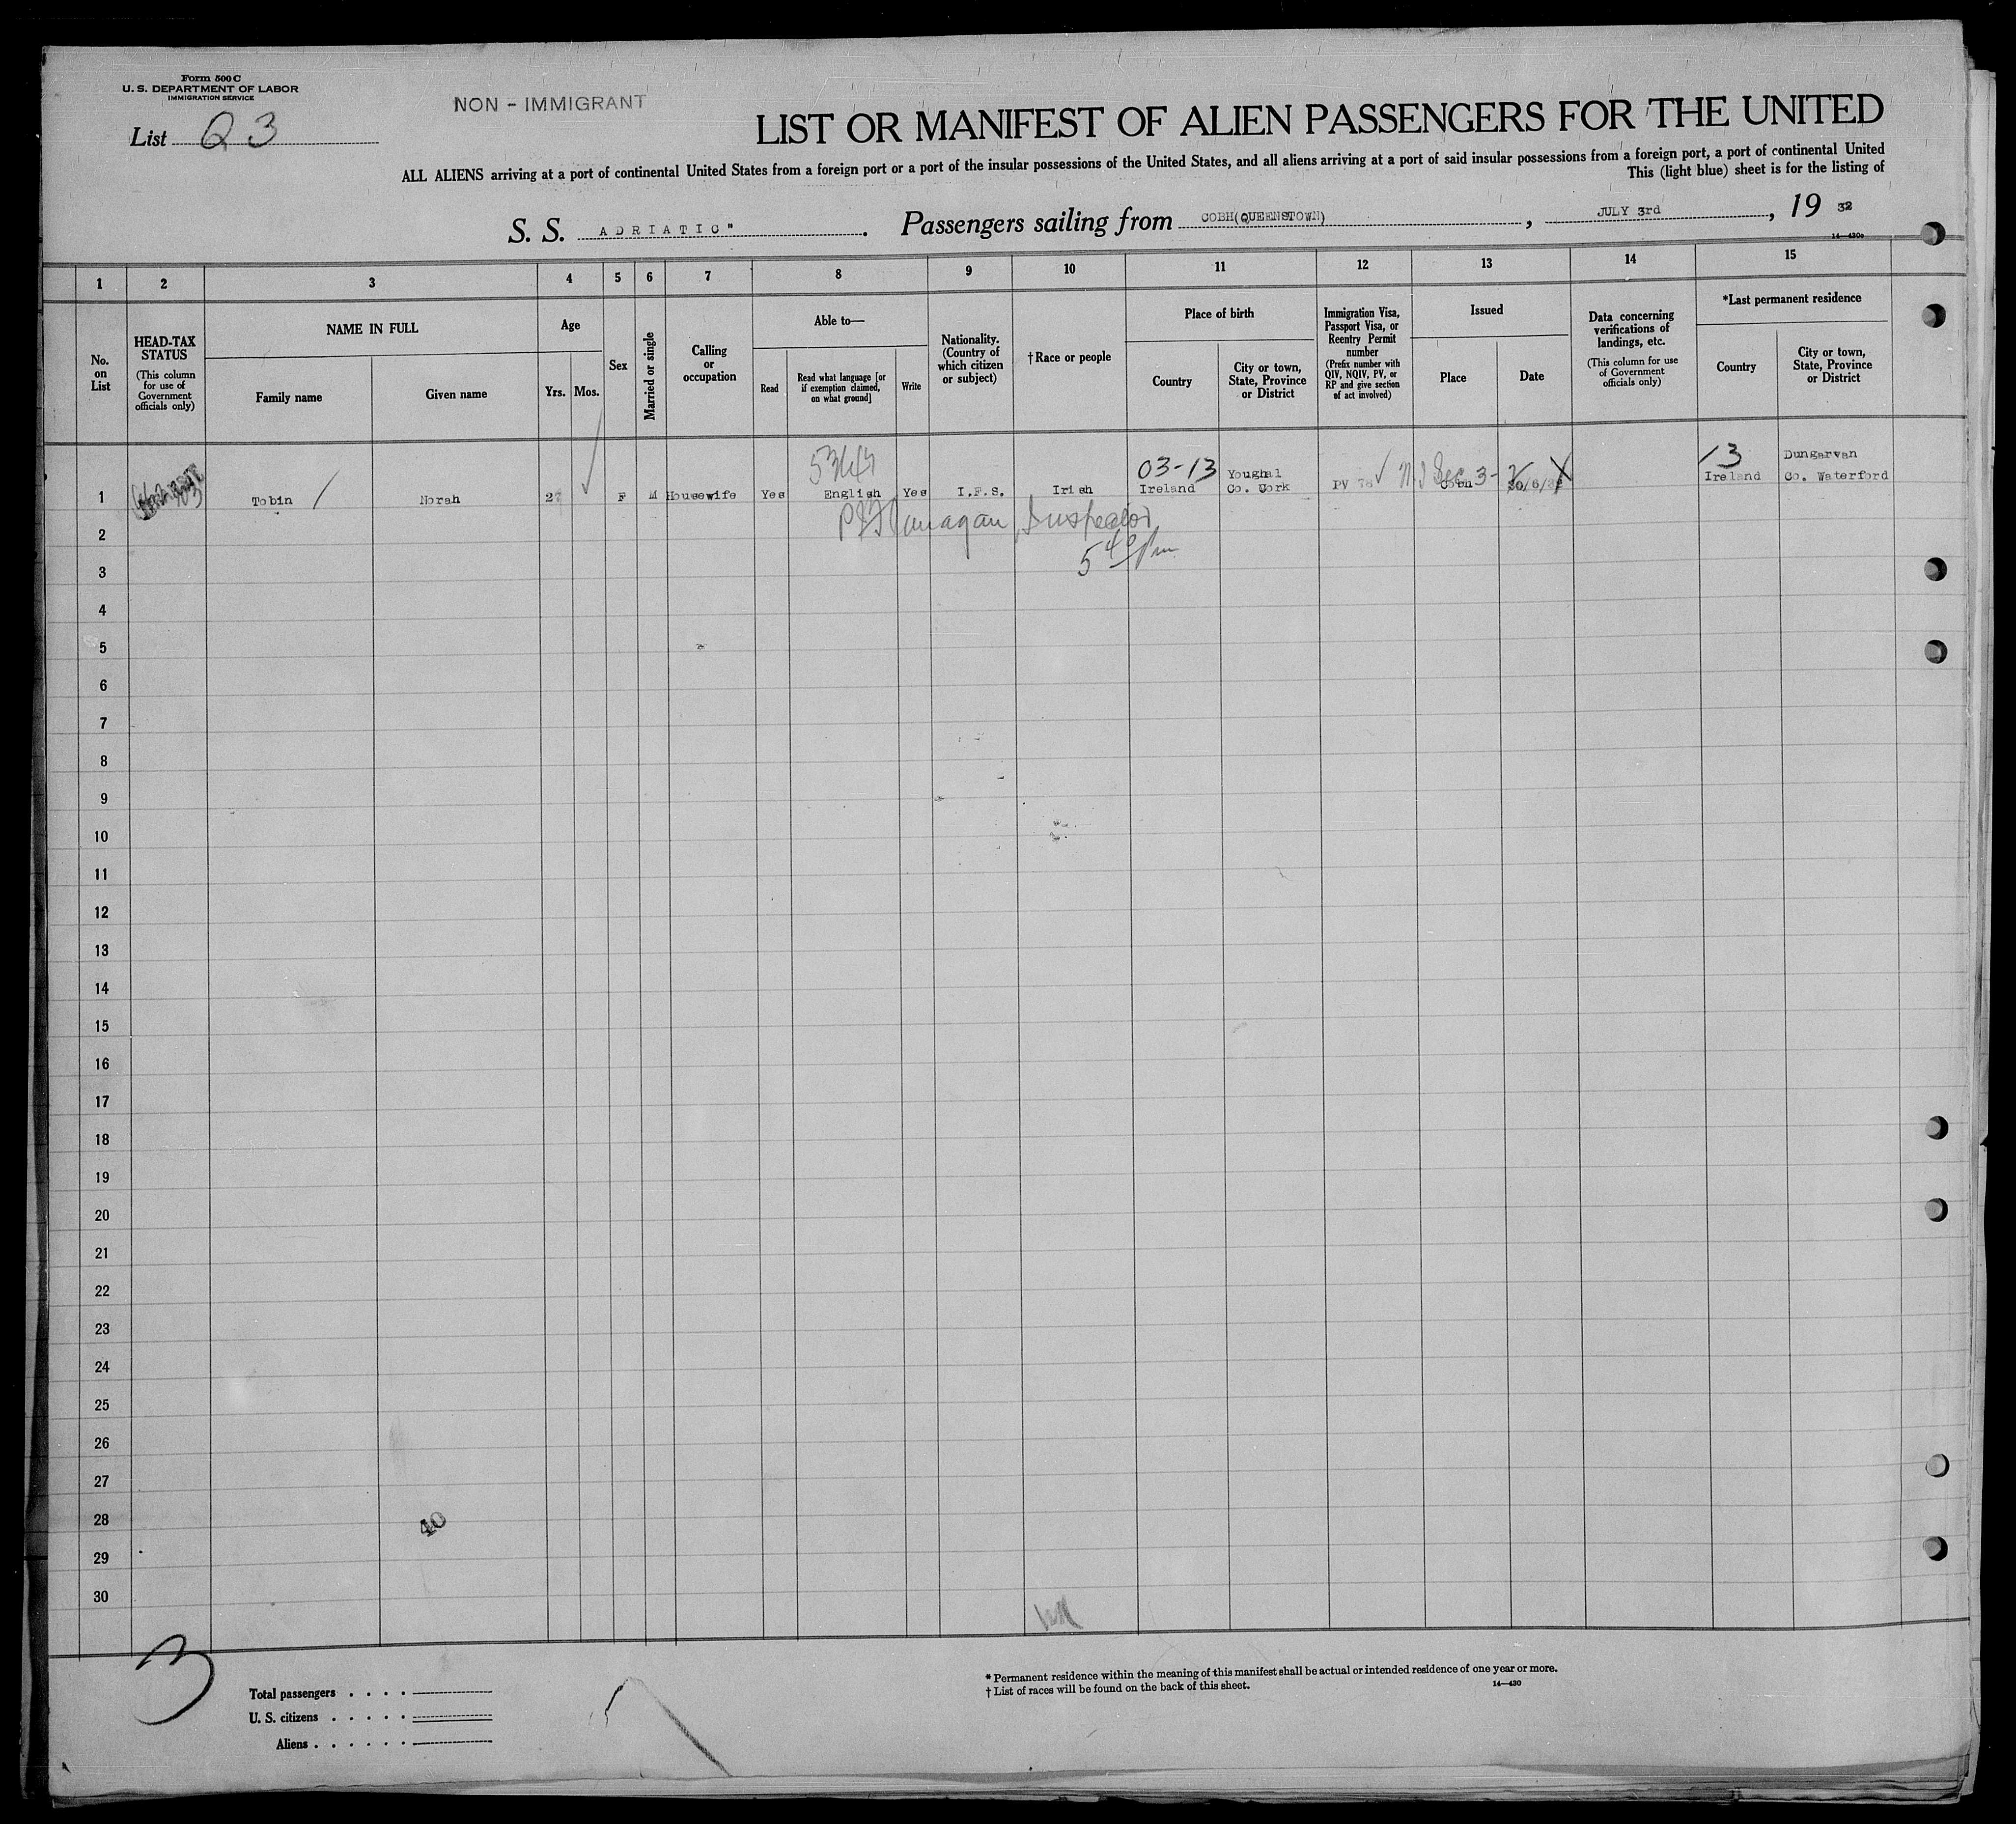 Form 500 C
U. S. DEPARTMENT OF LABOR
IMMIGRATION SERVICE
List Q 3
NON - IMMIGRANT
LIST OR MANIFEST OF ALIEN PASSENGERS FOR THE UNITED
ALL ALIENS arriving at a port of continental United States from a foreign port or a port of the insular possessions of the United States, and all aliens arriving at a port of said insular possessions from a foreign port, a port of continental United
This (light blue) sheet is for the listing of
S. S. ADRIATIC". Passengers sailing from COBH(QUEENSTOWN), JULY 3rd, 19 32
1 2 3 4 5 6 7 8 9 10 11 12 13 14 15
No. on List
HEAD-TAX STATUS
(This column for use of Government officials only)
NAME IN FULL
Family name
Given name
Age
Yrs.
Mos.
Sex
Married or single
Calling or occupation
Able to—
Read
Read what language [or if exemption claimed, on what ground]
Write
Nationality. (Country of which citizen or subject)
†Race or people
Place of birth
Country
City or town, State, Province or District
Immigration Visa, Passport Visa, or Reentry Permit number
(Prefix number with QIV, NQIV, PV, or RP and give section of act involved)
Issued
Place
Date
Data concerning verifications of landings, etc.
(This column for use of Government officials only)
*Last permanent residence
Country
City or town, State, Province or District
03-13 13
Youghal Dungarvan
1 Tobin Norah 27 F M Housewife Yes English Yes I.F.S. Irish Ireland Co. Cork PV 78 Cobh Ireland Co. Waterford
Flanagan, Inspector
5 40 pm
2
3
4
5
6
7
8
9
10
11
12
13
14
15
16
17
18
19
20
21
22
23
24
25
26
27
28
40
29
30
3
Total passengers . . . .
U. S. citizens . . . . .
Aliens . . . . . .
* Permanent residence within the meaning of this manifest shall be actual or intended residence of one year or more.
† List of races will be found on the back of this sheet.
14—430